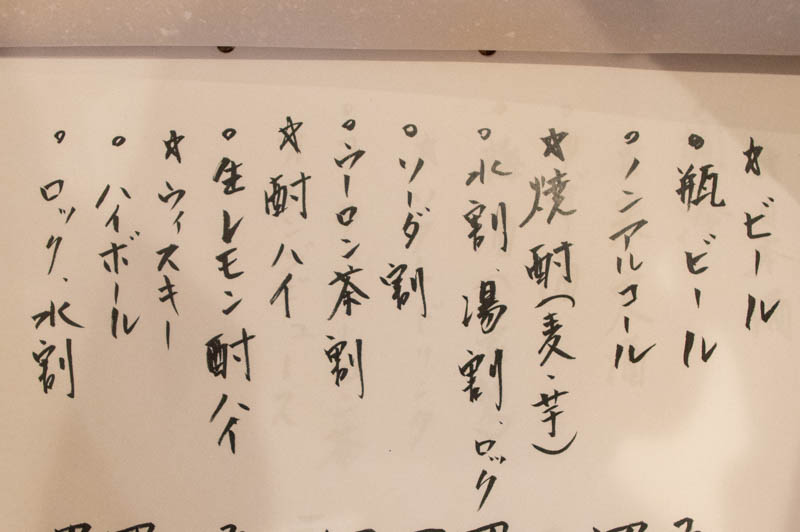 ☆ビール
○瓶ビール
○ノンアルコール
☆焼酎(麦・芋)
○水割、湯割、ロック
○ソーダ割
○ウーロン茶割
☆酎ハイ
○生レモン酎ハイ
☆ウィスキー
○ハイボール
○ロック、水割